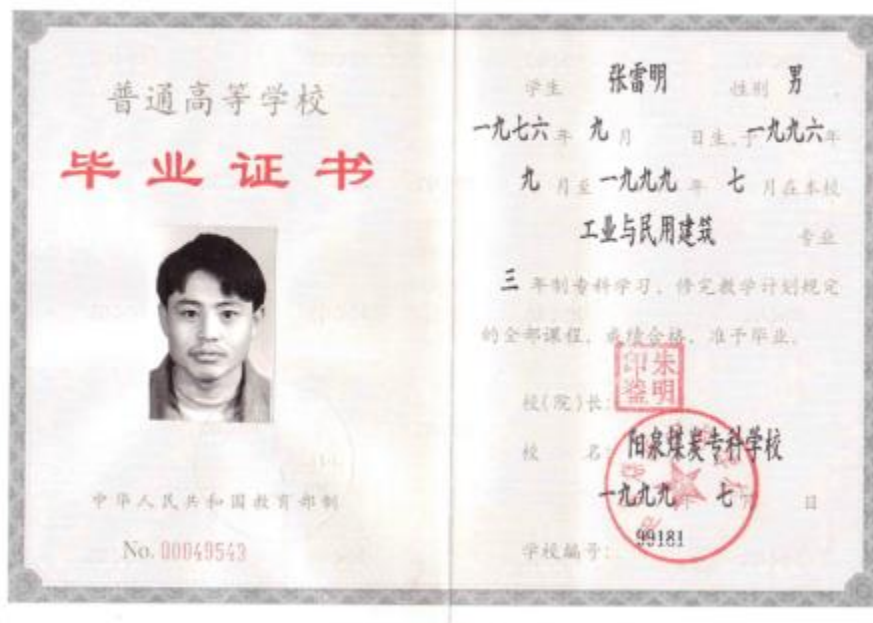 普通高等学校
毕业证书
中华人民共和国教育部制
No. 00049543
学生 张雷明 性别 男 .
一九七六年 九 月 日生,于一九九六年
九 月至一九九九 年 七 月在本校
工业与民用建筑 专业
三 年制专科学习,修完教学计划规定
的全部课程,成绩合格,准予毕业。
校(院)长:
朱明
印鉴
校 名: 阳泉煤炭专科学校
一九九九年 七月 日
学校编号: 99181